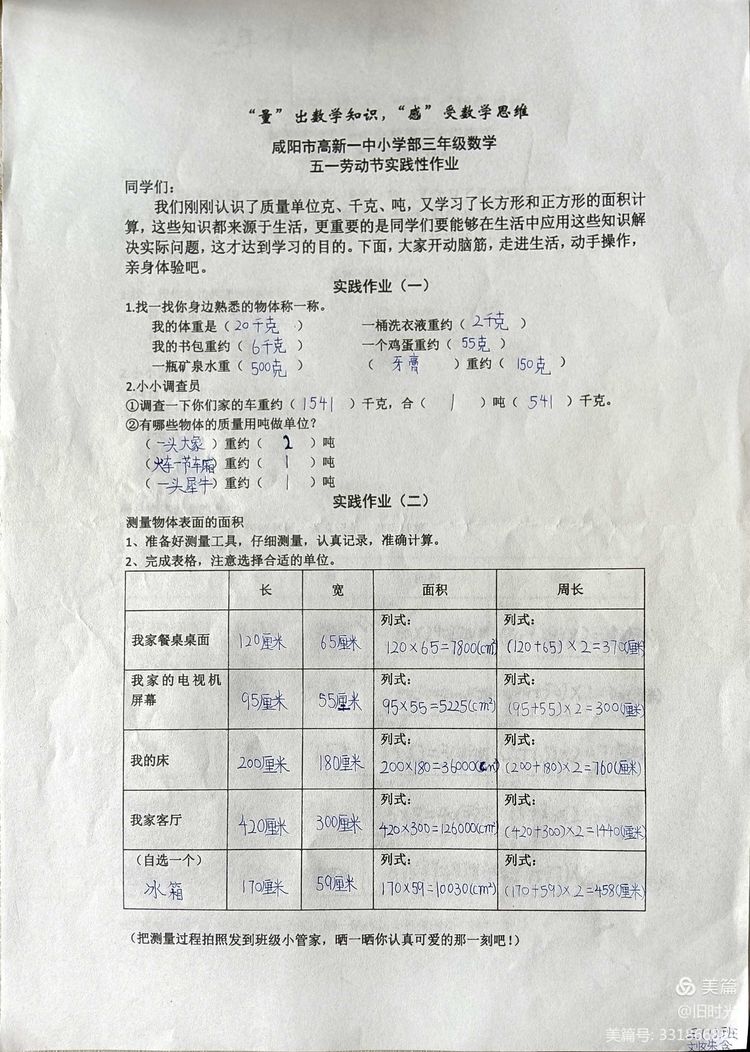 “量”出数学知识，“感”受数学思维
咸阳市高新一中小学部三年级数学
五一劳动节实践性作业
同学们：
我们刚刚认识了质量单位克、千克、吨，又学习了长方形和正方形的面积计
算，这些知识都来源于生活，更重要的是同学们要能够在生活中应用这些知识解
决实际问题，这才达到学习的目的。下面，大家开动脑筋，走进生活，动手操作，
亲身体验吧。
实践作业（一）
1.找一找你身边熟悉的物体称一称。
我的体重是（20千克） 一桶洗衣液重约（2千克）
我的书包重约（6千克） 一个鸡蛋重约（55克）
一瓶矿泉水重（500克） （牙膏）重约（150克）
2.小小调查员
①调查一下你们家的车重约（1541）千克，合（1）吨（541）千克。
②有哪些物体的质量用吨做单位？
（一头大象）重约（2）吨
（火车一节车厢）重约（1）吨
（一头犀牛）重约（1）吨
实践作业（二）
测量物体表面的面积
1、准备好测量工具，仔细测量，认真记录，准确计算。
2、完成表格，注意选择合适的单位。
长 宽 面积 周长
我家餐桌桌面 120厘米 65厘米 列式：120×65=7800(cm²) 列式：(120+65)×2=370(厘米)
我家的电视机屏幕 95厘米 55厘米 列式：95×55=5225(cm²) 列式：(95+55)×2=300(厘米)
我的床 200厘米 180厘米 列式：200×180=36000(cm²) 列式：(200+180)×2=760(厘米)
我家客厅 420厘米 300厘米 列式：420×300=126000(cm²) 列式：(420+300)×2=1440(厘米)
（自选一个）冰箱 170厘米 59厘米 列式：170×59=10030(cm²) 列式：(170+59)×2=458(厘米)
（把测量过程拍照发到班级小管家，晒一晒你认真可爱的那一刻吧！）
美篇
@旧时光
美篇号: